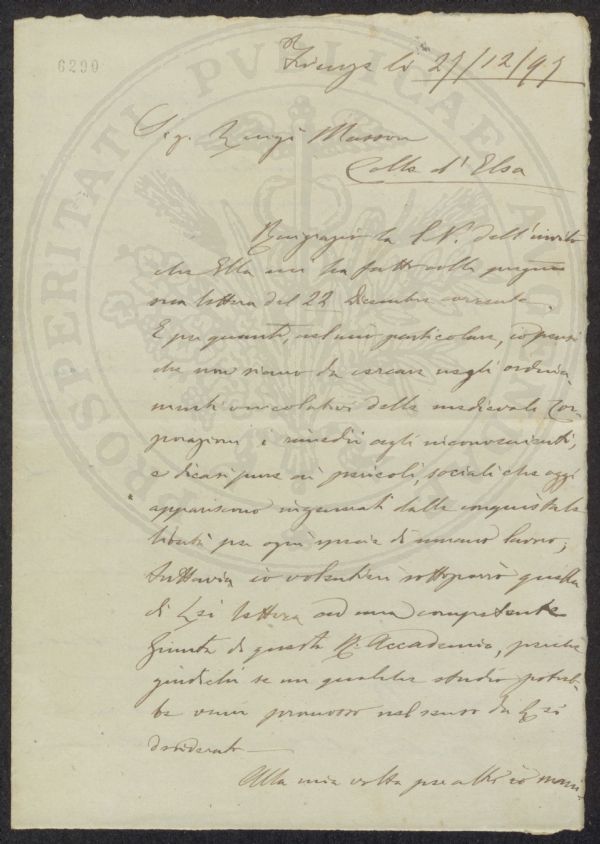 6290
Firenze li 27/12/95
Sig. Luigi Masson
Colle d'Elsa
Ringrazio la S.V. dell'invito
che Ella mi ha fatto colla
sua lettera del 22 Dicembre corrente.
E per quanto, nel mio particolare, io pensi
che non siano da cercare negli ordina-
menti vincolativi delle medievali Cor-
porazioni i rimedii agli inconvenienti,
e dicasi pure ai pericoli, sociali che oggi
appariscono ingenerati dalla conquistata
libertà per ogni specie di umano lavoro;
tuttavia io volentieri sottoporrò quella
di Lei lettera ad una competente
Giunta di questa R. Accademia, perchè
giudichi se un qualche studio potreb-
be venir promosso nel senso da Lei
desiderato.
Alla mia volta per altro io mani-
PROSPERITATI PUBLICAE AUGENDAE